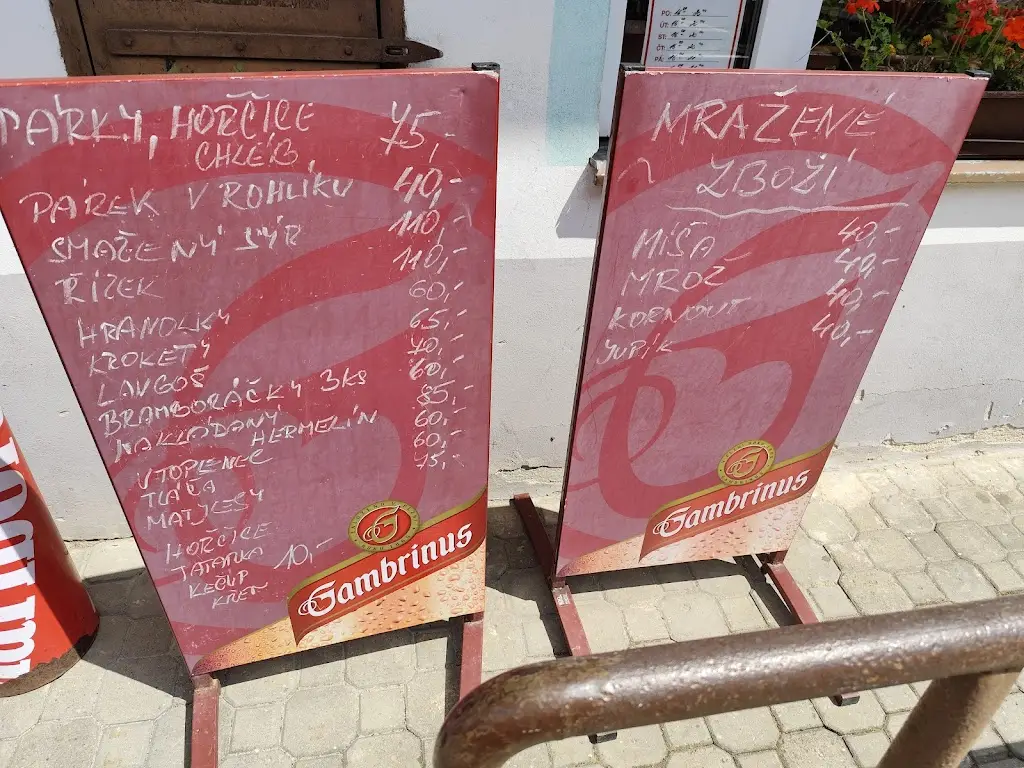 PÁRKY, HOŘČICE 75,-
CHLÉB
PÁREK V ROHLÍKU 40,-
SMAŽENÝ SÝR 110,-
ŘÍZEK 110,-
HRANOLKY 60,-
KROKETY 65,-
LANGOŠ 70,-
BRAMBORÁČKY 3KS 60,-
NAKLÁDANÝ HERMELÍN 85,-
UTOPENEC 60,-
TLAČA 60,-
MATJESY 75,-
HORČICE
TATARKA 10,-
KEČUP
KŘEN
Gambrinus
MRAŽENÉ
ZBOŽÍ
MÍŠA 40,-
MROŽ 40,-
KORNOUT 40,-
JUPÍK 40,-
Gambrinus
PO:
ÚT:
ST:
ČT:
PÁ: